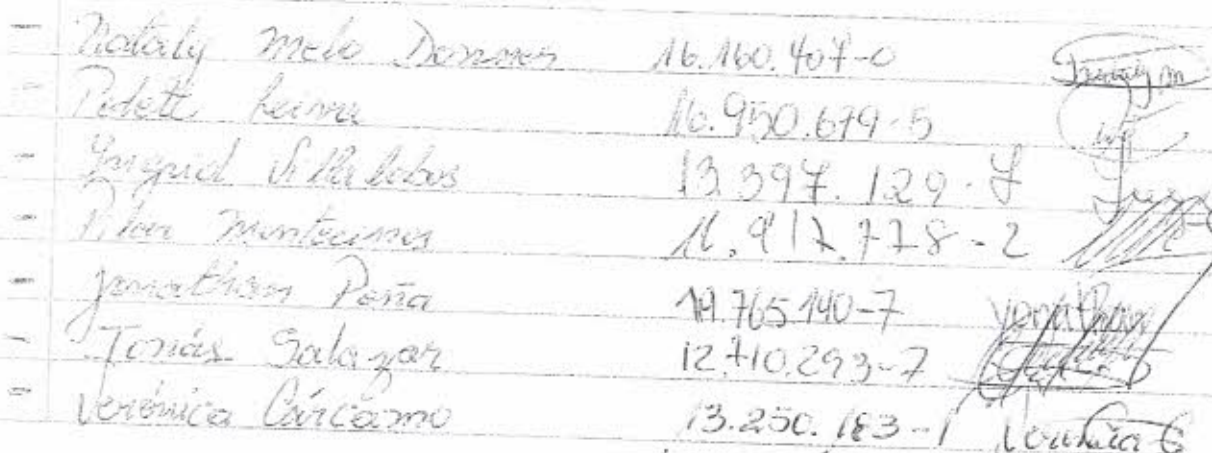 Nataly Melo Donoso 16.160.407-0 Nataly M
Leiva 16.950.679-5
Ingrid Villalobos 13.397.129-7
Pilar Montecinos 11.917.778-2
Jonathan Peña 19.765.140-7 Yonathan
Tomás Salazar 12.710.293-7
Verónica Cárcamo 13.250.183-1 Veronica C